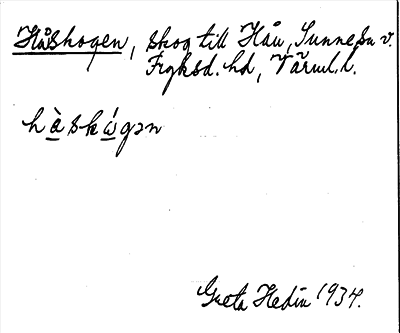 Håskogen, skog till Hån, Sunne sn v.
Fryksd. hd, Värml. l.
hàskógən
Greta Hedin 1934.